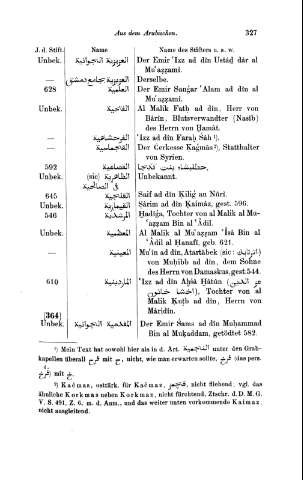 Aus dem Arabischen. 327
J. d. Stift. Name Name des Stifters u. s. w.
Unbek. العزيزية الجوانية Der Emir ʿIzz ad dîn Ustâd dâr al
Muʿaẓẓami.
— العزيزية بجامع دمشق Derselbe.
628 العلمية Der Emir Sanǵar ʿAlam ad dîn al
Muʿaẓẓami.
Unbek. Al Malik Fatḥ ad dîn, Herr von
Bârîn, Blutsverwandter (Nasîb)
des Herrn von Ḥamât.
— الفرخشاهية ʿIzz ad dîn Faraḫ Šâh ¹).
— Der Cerkesse Kaǵmâs ²), Statthalter
von Syrien.
592
Unbek. (sic) الظاهرية Unbekannt.
في الصالحية
645 القلجية Saif ad dîn Ḳiliǵ an Nûrî.
Unbek. القيمازية Ṣârim ad dîn Ḳaimâz, gest. 596.
546 المرشدية Ḫadîǵa, Tochter von al Malik al Mu-
ʿaẓẓam Bin al ʿÂdil.
Unbek. المعظمية Al Malik al Muʿaẓẓam ʿÎsâ Bin al
ʿÂdil al Ḥanafî, geb. 621.
— المعينية Muʿîn ad dîn, Atartâbek (sic: اترتابك)
von Muhibb ad dîn, dem Sohne
des Herrn von Damaskus, gest. 544.
610 الماردينية ʿIzz ad dîn Aḫšâ Ḫâtûn (عز الدين
اخشا خاتون), Tochter von al
Malik Ḳuṭb ad dîn, Herrn von
Mâridîn.
[364]
Unbek. المقدمية الجوانية Der Emir Šams ad dîn Muḥammad
Bin al Muḳaddam, getödtet 582.
¹) Mein Text hat sowohl hier als in d. Art. unter den Grab-
kapellen überall فرح mit ح, nicht, wie man erwarten sollte, فرخ (das pers.
فرّخ) mit خ.
²) Kaǵmas, osttürk. für Kaćmaz, قاچمز, nicht fliehend; vgl. das
ähnliche Korkmas neben Korkmaz, nicht fürchtend, Ztschr. d. D. M. G.
V. S. 491, Z. 6. m. d. Anm., und das weiter unten vorkommende Kaimaz,
nicht ausgleitend.